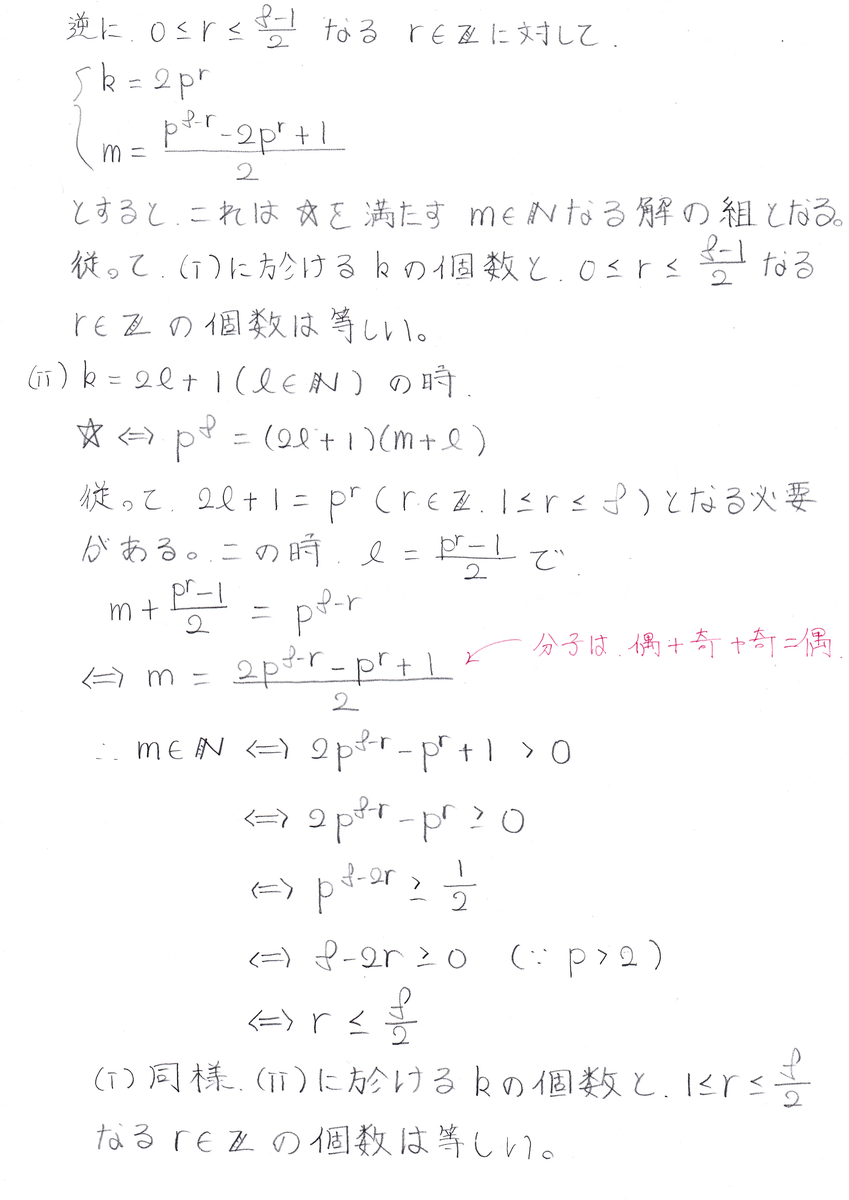 逆に、0 ≤ r ≤ (f-1)/2 なる r ∈ ℤ に対して、
{ k = 2p^r
m = (p^{f-r} - 2p^r + 1)/2
とすると、これは ☆を満たす m∈ℕなる解の組となる。
従って、(i)に於けるkの個数と、0 ≤ r ≤ (f-1)/2 なる
r∈ℤ の個数は等しい。
(ii) k = 2l + 1 (l∈ℕ) の時、
☆ ⇔ p^f = (2l+1)(m+l)
従って、2l+1 = p^r (r∈ℤ, 1 ≤ r ≤ f)となる必要
がある。この時、l = (p^r-1)/2 で、
m + (p^r-1)/2 = p^{f-r}
⇔ m = (2p^{f-r} - p^r + 1)/2 ← 分子は、偶+奇+奇=偶。
∴ m∈ℕ ⇔ 2p^{f-r} - p^r + 1 > 0
⇔ 2p^{f-r} - p^r ≥ 0
⇔ p^{f-2r} ≥ 1/2
⇔ f-2r ≥ 0 (∵ p>2)
⇔ r ≤ f/2
(i)同様、(ii)に於けるkの個数と、1≤r≤ f/2
なる r∈ℤ の個数は等しい。